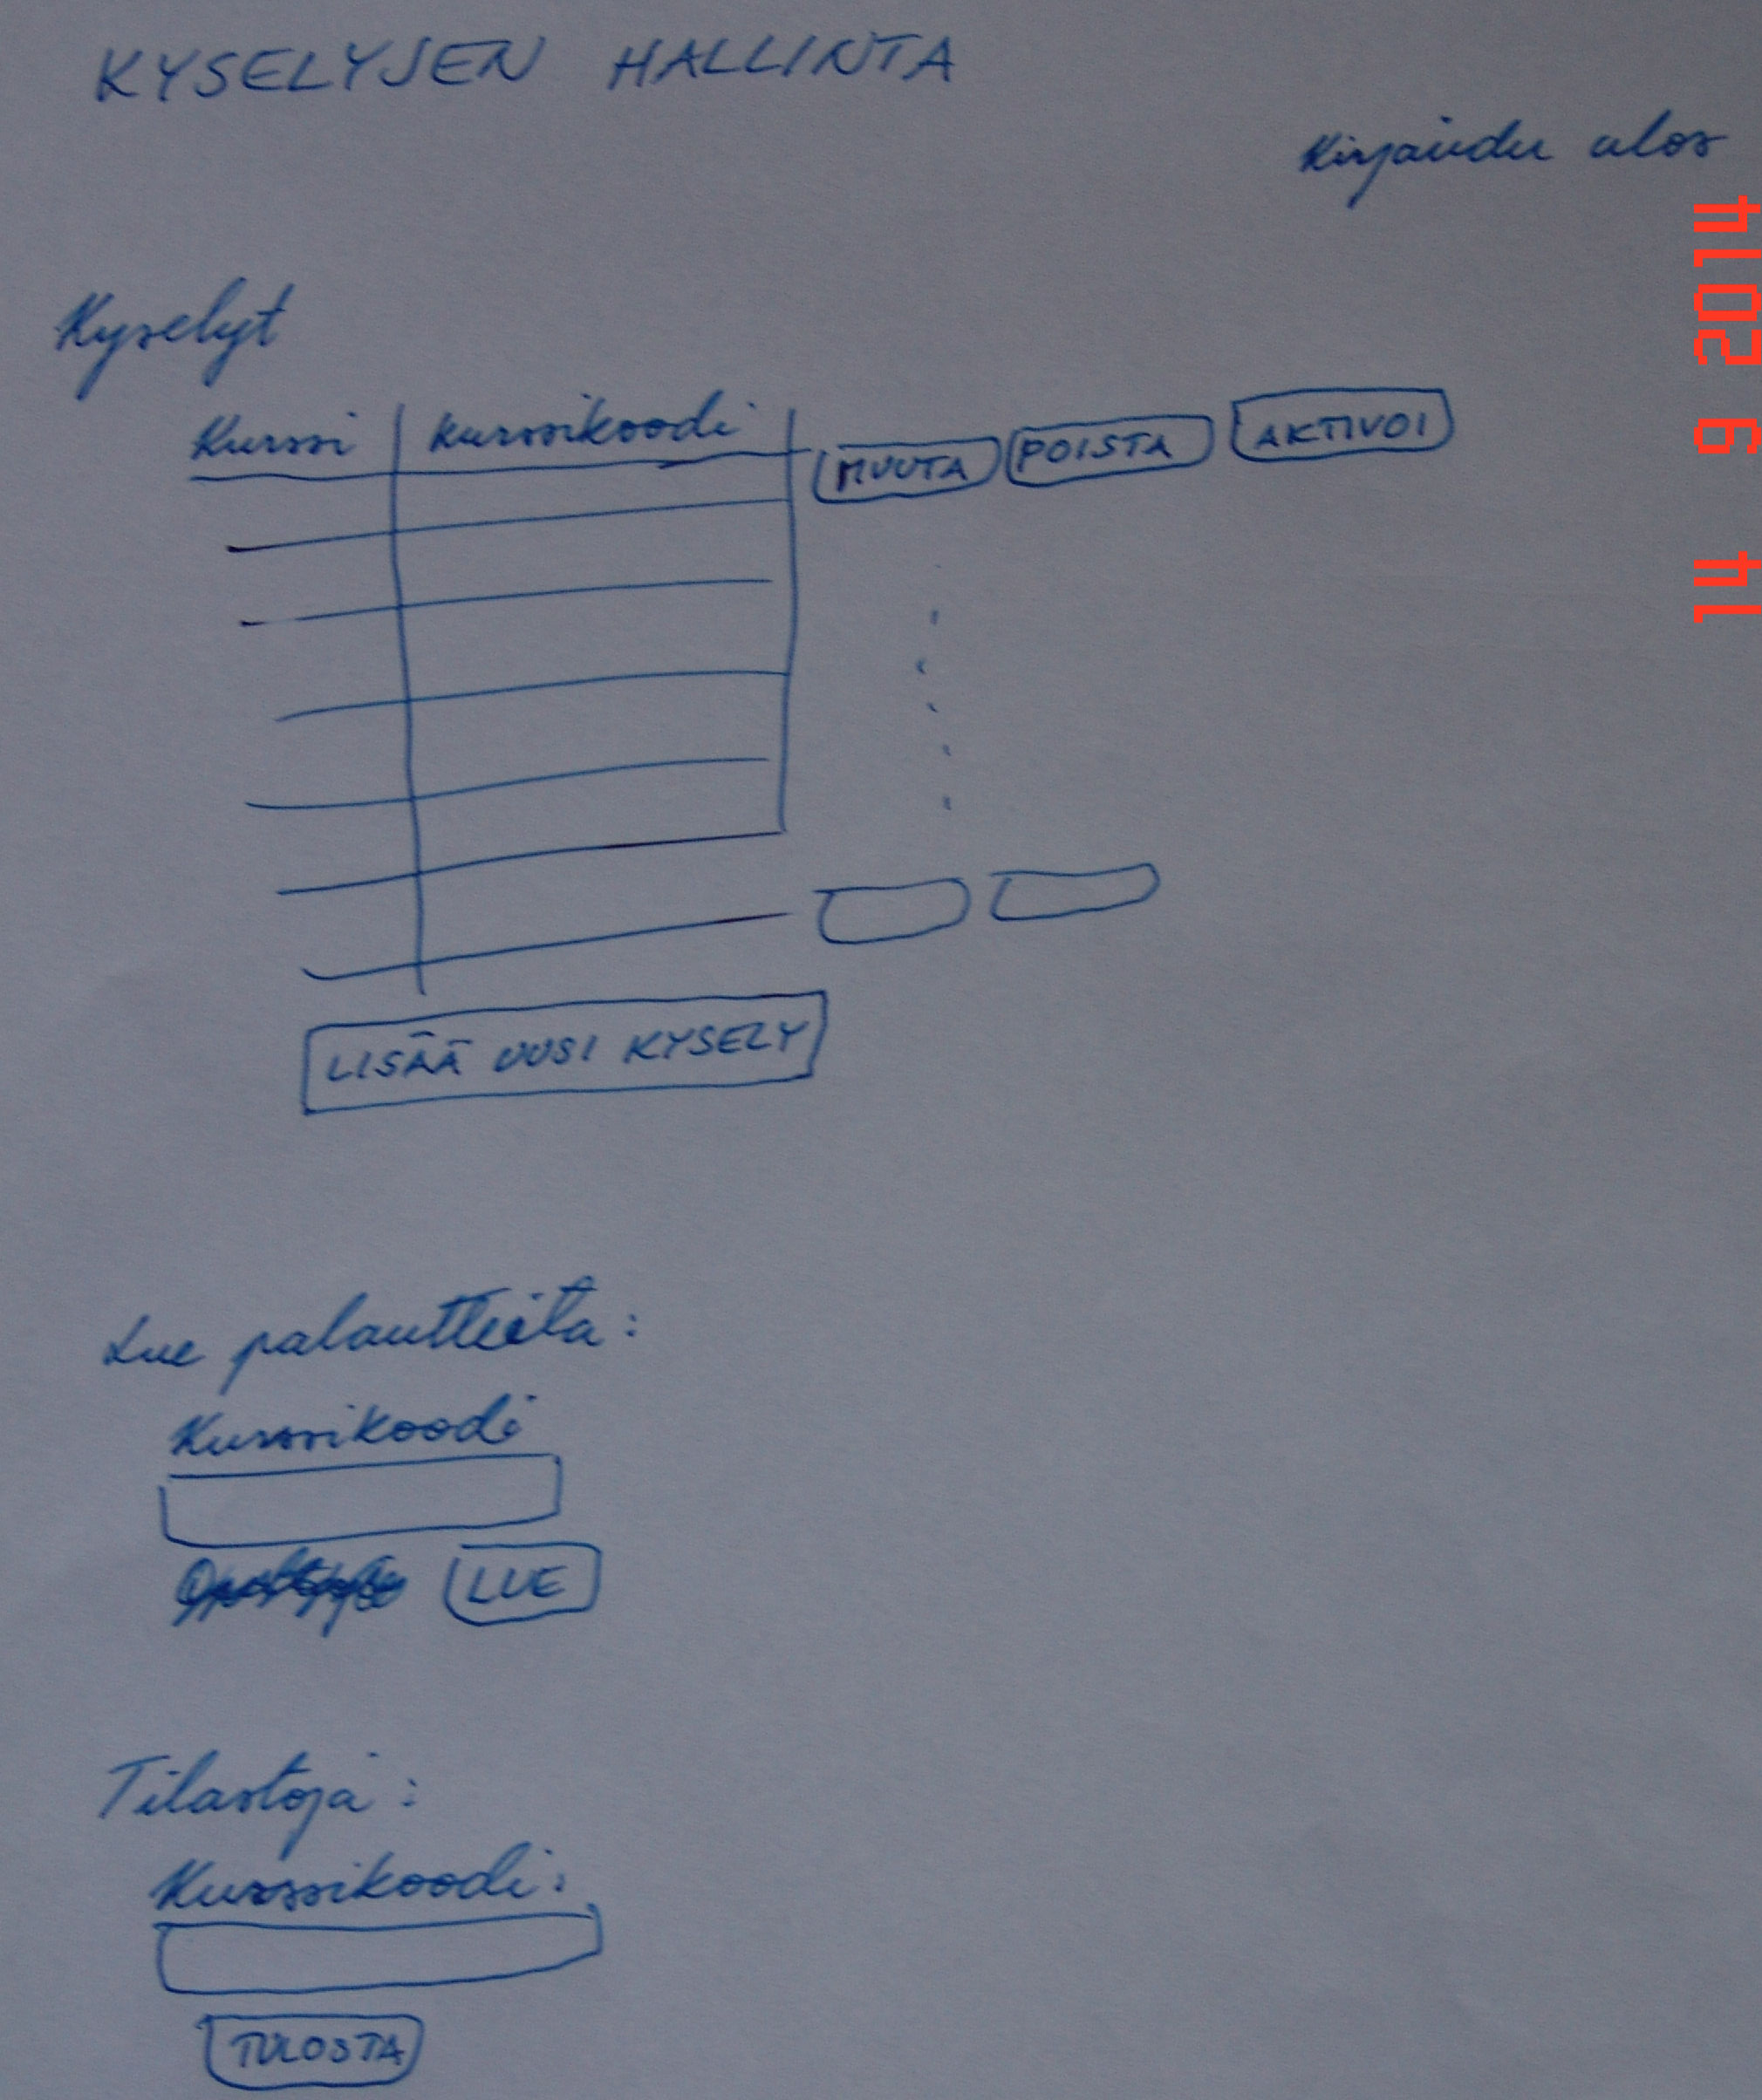 KYSELYJEN HALLINTA
Kirjaudu ulos
Kyselyt
Kurssi kurssikoodi MUUTA POISTA AKTIVOI
LISÄÄ UUSI KYSELY
Lue palautteita:
Kurssikoodi
LUE
Tilastoja:
Kurssikoodi:
TULOSTA
2014 6 14